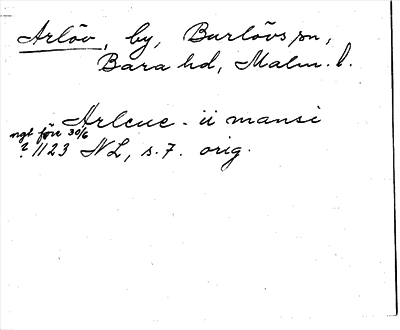 Arlöv, by, Burlövs sn,
Bara hd, Malm. l.
Arleue - ii mansi
ngt före 30/6
? 1123 NL, s. 7. orig.